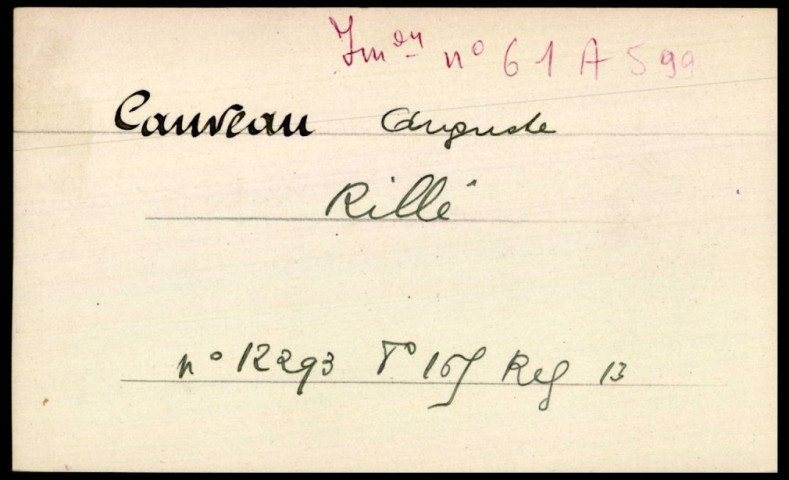 Imon n° 61 A 599
Cauveau Auguste
Rillé
n° 12293 F° 167 Reg 13